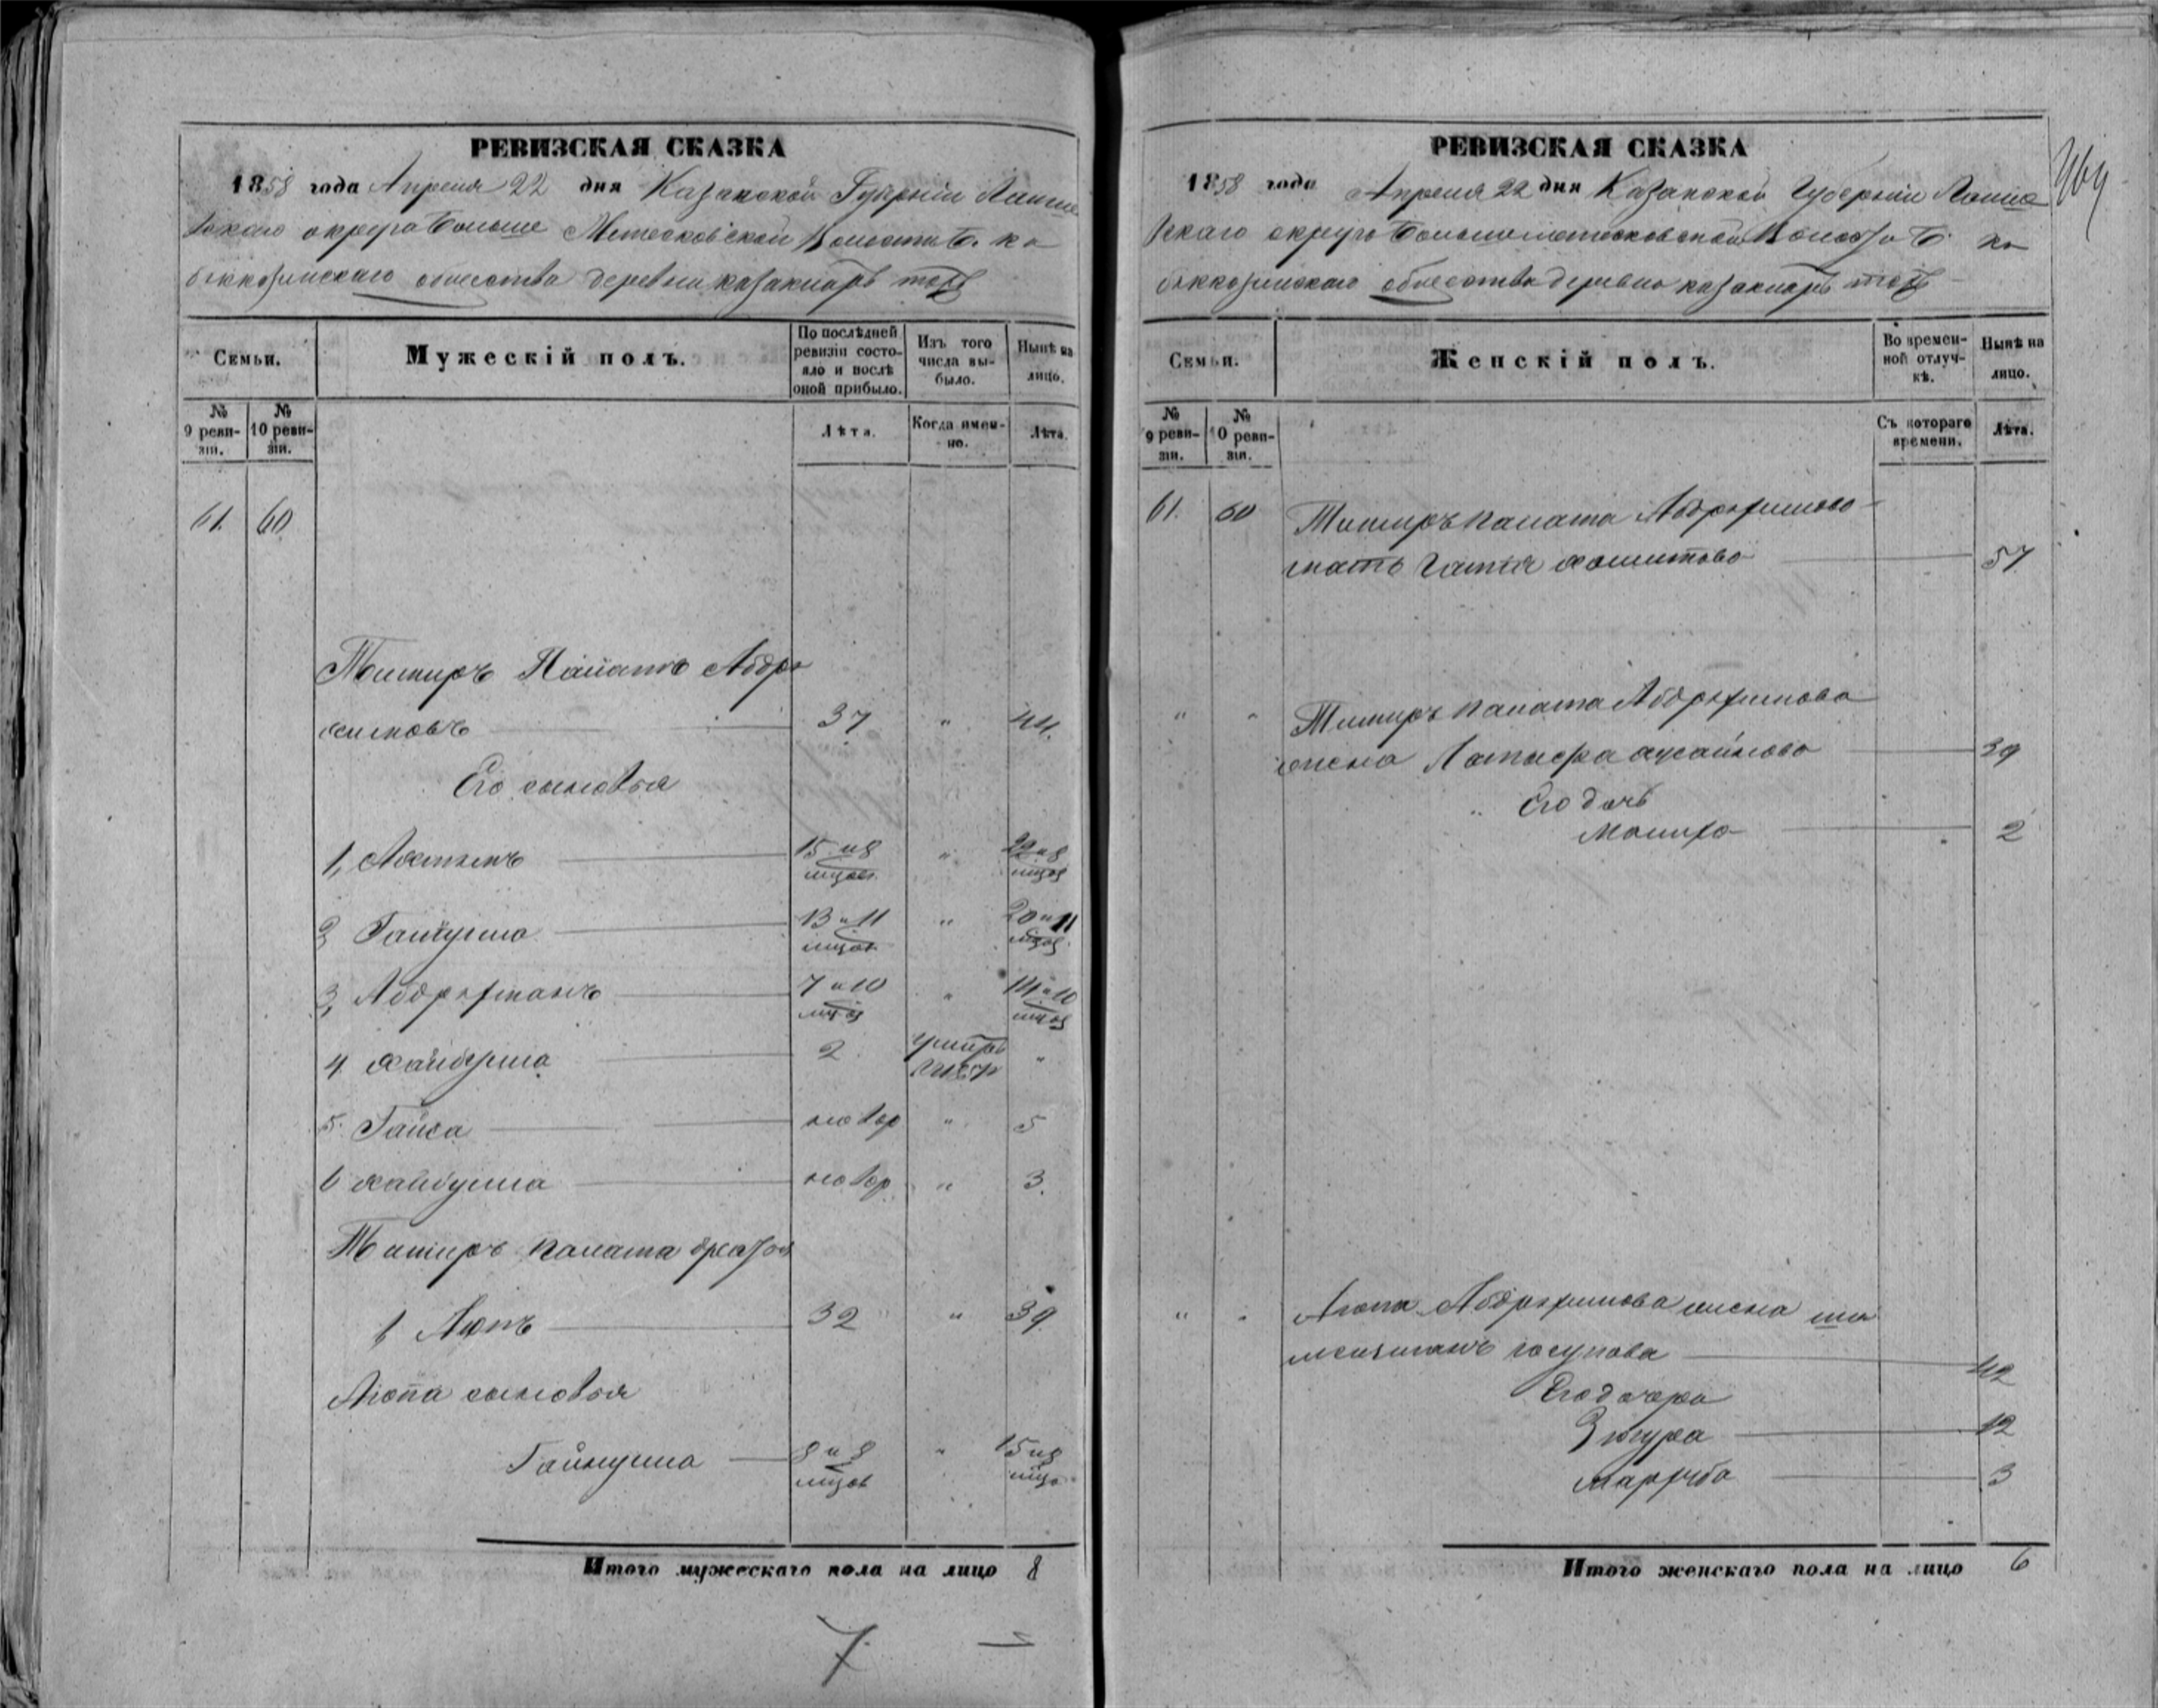 РЕВИЗСКАЯ СКАЗКА
1858 года Апреля 22 дня Казанской Губернiи Лаише
вскаго округа Больше Метесковской Волости Б. Ка
общества деревни казакларъ татар
Семьи.
Мужескiй полъ.
По послѣдней ревизiи состояло и послѣ оной прибыло.
Изъ того числа выбыло.
Нынѣ на лицо.
№ 9 ревизiи.
№ 10 ревизiи.
Лѣта.
Когда именно.
Лѣта.
61. 60
Тимиръ Палатъ Абдра
химовъ 37 " 44.
Его сыновья
1, 15 и 8 мцов " 22 и 8 мцов
2 13 и 11 мцов " 20 и 11 мцов
3, Абдрахманъ 7 и 10 мцов " 14 и 10 мцов
4 Хайбулла 2 умеръ "
5. Гайса новор " 5
6 Хайбулла новор " 3.
Тимиръ Палата братья
1 Аюпъ 32 " 39
Аюпа сыновья
Гайнулла 8 и 8 мцов " 15 и 8 мцо
Итого мужескаго пола на лицо 8
7
РЕВИЗСКАЯ СКАЗКА
1858 года Апреля 22 дня Казанской Губернiи Лаише
вскаго округа Большеметесковской Волости Б. Ка
общества деревни казакларъ татар
Семьи.
Женскiй полъ.
Во временной отлучкѣ.
Нынѣ на лицо.
№ 9 ревизiи.
№ 10 ревизiи.
Съ котораго времени.
Лѣта.
61. 60 Тимиръ Палата Абдрахимова
мать Хамитова 57
" " Тимиръ Палата Абдрахимова
жена Латифа Хусаинова 39
Его дочь
2
" " Аюпа Абдрахимова жена
Юсупова 42
Его дочери
Зюгура 12
Марзуба 3
Итого женскаго пола на лицо 6